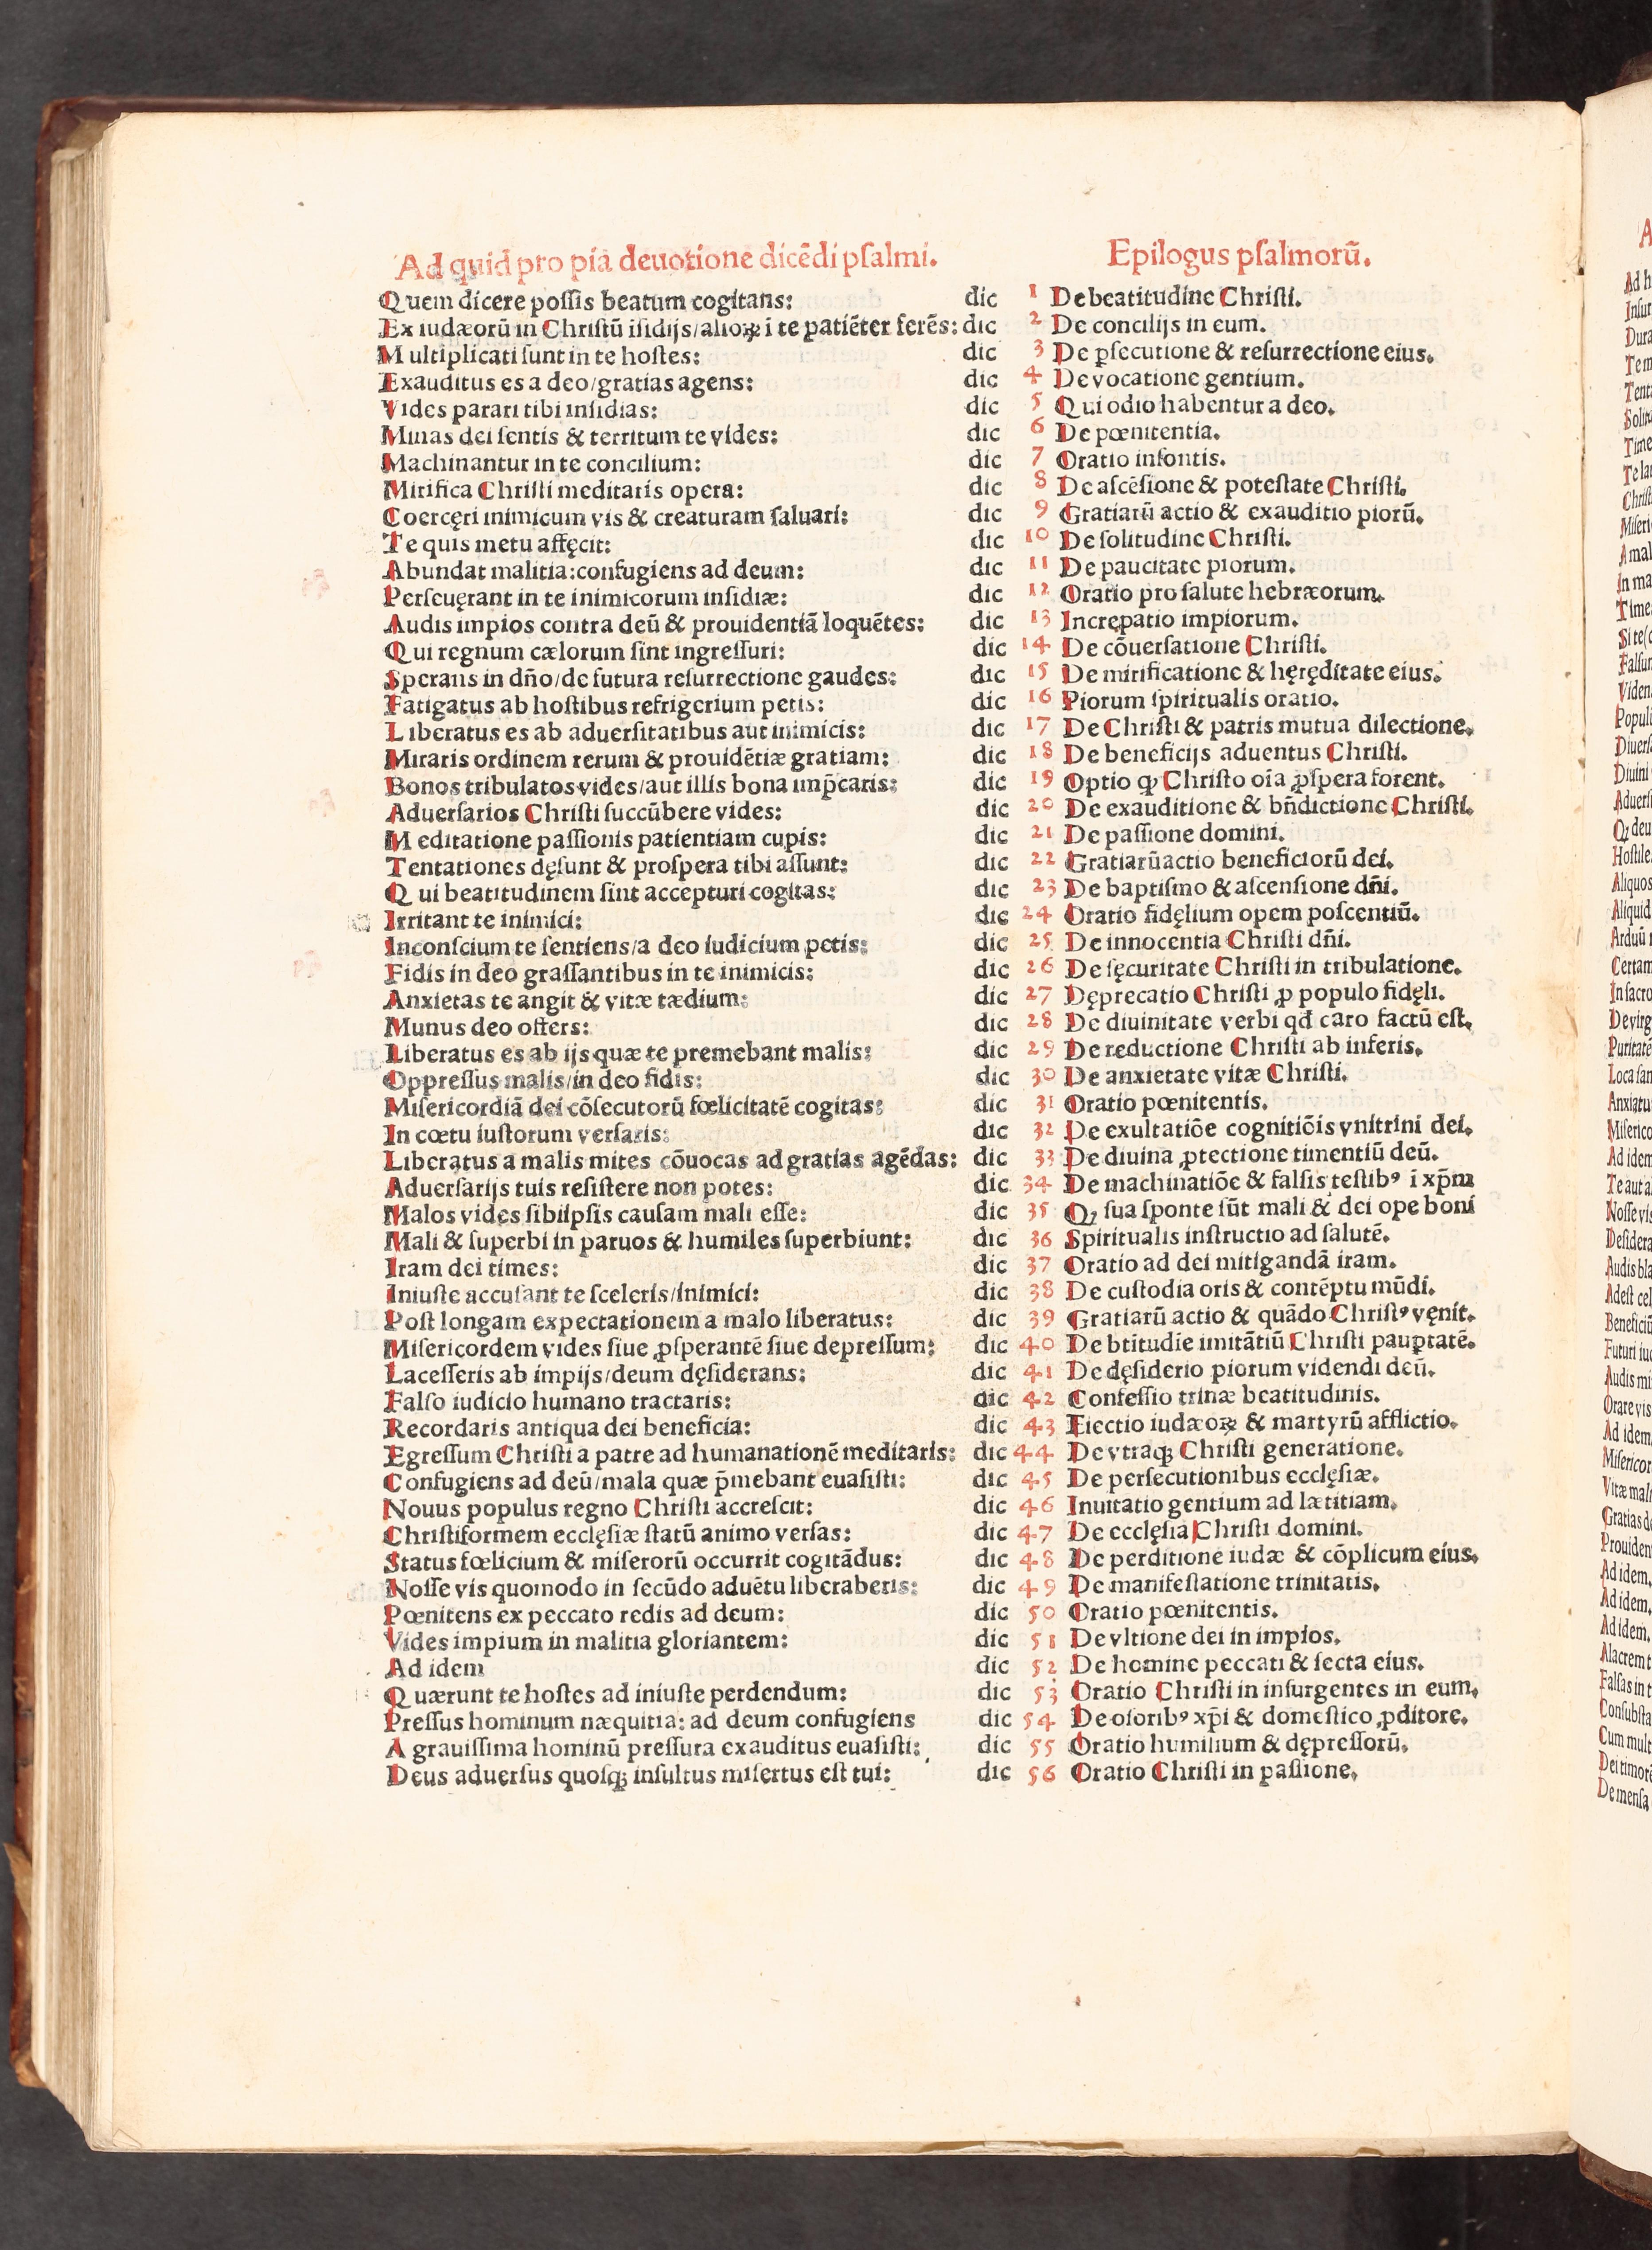 Ad quid pro pia deuotione dicēdi pſalmi. Epilogus pſalmorū.
Quem dicere poſſis beatum cogitans: dic 1 De beatitudine Chriſti.
Ex iudæorū in Chriſtū iſidijs/alioꝝ i te patiēter ferēs: dic 2 De concilijs in eum.
Multiplicati ſunt in te hoſtes: dic 3 De ꝑſecutione & reſurrectione eius.
Exauditus es a deo/gratias agens: dic 4 De vocatione gentium.
Vides parari tibi inſidias: dic 5 Qui odio habentur a deo.
Minas dei ſentis & territum te vides: dic 6 De pœnitentia.
Machinantur in te concilium: dic 7 Oratio inſontis.
Mirifica Chriſti meditaris opera: dic 8 De aſcēſione & poteſtate Chriſti.
Coercęri inimicum vis & creaturam ſaluari: dic 9 Gratiarū actio & exauditio piorū.
Te quis metu affęcit: dic 10 De ſolitudine Chriſti.
Abundat malitia:confugiens ad deum: dic 11 De paucitate piorum.
Perſeuęrant in te inimicorum inſidiæ: dic 12 Oratio pro ſalute hebræorum.
Audis impios contra deū & prouidentiā loquētes: dic 13 Incrępatio impiorum.
Qui regnum cælorum ſint ingreſſuri: dic 14 De cōuerſatione Chriſti.
Sperans in dño/de futura reſurrectione gaudes: dic 15 De mirificatione & hęręditate eius.
Fatigatus ab hoſtibus refrigerium petis: dic 16 Piorum ſpiritualis oratio.
Liberatus es ab aduerſitatibus aut inimicis: dic 17 De Chriſti & patris mutua dilectione.
Miraris ordinem rerum & prouidētiæ gratiam: dic 18 De beneficijs aduentus Chriſti.
Bonos tribulatos vides/aut illis bona imp̄caris: dic 19 Optio ꝙ Chriſto oīa ꝓſpera forent.
Aduerſarios Chriſti ſuccūbere vides: dic 20 De exauditione & bñdictione Chriſti.
Meditatione paſſionis patientiam cupis: dic 21 De paſſione domini.
Tentationes dęſunt & proſpera tibi aſſunt: dic 22 Gratiarū actio beneficiorū dei.
Qui beatitudinem ſint accepturi cogitas: dic 23 De baptiſmo & aſcenſione dñi.
Irritant te inimici: dic 24 Oratio fidęlium opem poſcentiū.
Inconſcium te ſentiens/a deo iudicium petis: dic 25 De innocentia Chriſti dñi.
Fidis in deo graſſantibus in te inimicis: dic 26 De ſęcuritate Chriſti in tribulatione.
Anxietas te angit & vitæ tædium: dic 27 Dęprecatio Chriſti ꝓ populo fidęli.
Munus deo offers: dic 28 De diuinitate verbi qđ caro factū eſt.
Liberatus es ab ijs quæ te premebant malis: dic 29 De reductione Chriſti ab inferis.
Oppreſſus malis/in deo fidis: dic 30 De anxietate vitæ Chriſti.
Miſericordiā dei cōſecutorū fœlicitatē cogitas: dic 31 Oratio pœnitentis.
In cœtu iuſtorum verſaris: dic 32 De exultatiōe cognitiōis vnitrini dei.
Liberatus a malis mites cōuocas ad gratias agēdas: dic 33 De diuina ꝓtectione timentiū deū.
Aduerſarijs tuis reſiſtere non potes: dic 34 De machinatiōe & falſis teſtibꝰ ī xp̄m
Malos vides ſibiipſis cauſam mali eſſe: dic 35 Qꝫ ſua ſponte ſūt mali & dei ope boni
Mali & ſuperbi in paruos & humiles ſuperbiunt: dic 36 Spiritualis inſtructio ad ſalutē.
Iram dei times: dic 37 Oratio ad dei mitigandā iram.
Iniuſte accuſant te ſceleris/inimici: dic 38 De cuſtodia oris & contēptu mūdi.
Poſt longam expectationem a malo liberatus: dic 39 Gratiarū actio & quādo Chriſtꝰ vęnit.
Miſericordem vides ſiue ꝓſperantē ſiue depreſſum: dic 40 De btītudīe imitātiū Chriſti pauꝑtatē.
Laceſſeris ab impijs/deum dęſiderans: dic 41 De dęſiderio piorum videndi deū.
Falſo iudicio humano tractaris: dic 42 Confeſſio trinæ beatitudinis.
Recordaris antiqua dei beneficia: dic 43 Eiectio iudæoꝝ & martyrū afflictio.
Egreſſum Chriſti a patre ad humanationē meditaris: dic 44 De vtraqꝫ Chriſti generatione.
Confugiens ad deū/mala quæ p̄mebant euaſiſti: dic 45 De perſecutionibus ecclęſiæ.
Nouus populus regno Chriſti accreſcit: dic 46 Inuitatio gentium ad lætitiam.
Chriſtiformem ecclęſiæ ſtatū animo verſas: dic 47 De ecclęſia Chriſti domini.
Status fœlicium & miſerorū occurrit cogitādus: dic 48 De perditione iudæ & cōplicum eius.
Noſſe vis quomodo in ſecūdo aduētu liberaberis: dic 49 De manifeſtatione trinitatis.
Pœnitens ex peccato redis ad deum: dic 50 Oratio pœnitentis.
Vides impium in malitia gloriantem: dic 51 De vltione dei in impios.
Ad idem dic 52 De homine peccati & ſecta eius.
Quærunt te hoſtes ad iniuſte perdendum: dic 53 Oratio Chriſti in inſurgentes in eum.
Preſſus hominum næquitia: ad deum confugiens dic 54 De oſoribꝰ xp̄i & domeſtico ꝓditore.
A grauiſſima hominū preſſura exauditus euaſiſti: dic 55 Oratio humilium & dępreſſorū.
Deus aduerſus quoſqꝫ inſultus miſertus eſt tui: dic 56 Oratio Chriſti in paſſione.